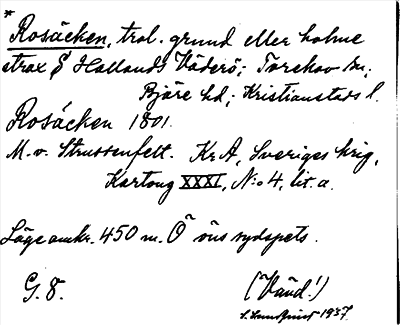 * Rosäcken, trol. grund eller holme
strax S Hallands Väderö; Torekov sn;
Bjäre hd; Kristianstads l.
Rosäcken 1801.
M. v. Strussenfelt. Kr A, Sveriges krig,
Kartong XXXI, N:o 4, lit. a.
Läge omkr. 450 m. Ö öns sydspets.
G. 8.
(Vänd!)
S. Lundqvist 1937.